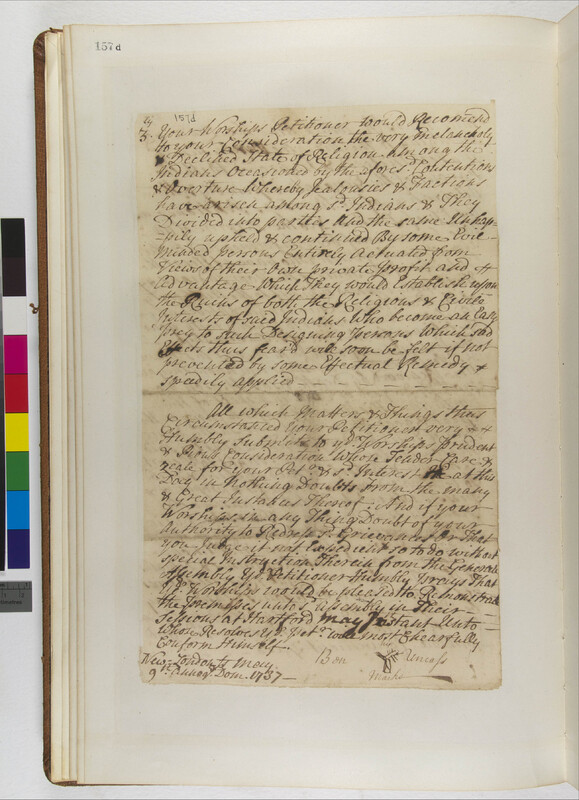 157 d
157d
ly
3. Your Worships Petitioner would Recomend
to your Consideration the very melancholy
& Declined State of Religion among the
Indians Occasioned by the afores.d Contentions
& Overture Whereby Jealousies & Factions
have arisen among sd Indians & They
Divided into parties And the same Unhap-
-pily upheld & continued By some Evil
minded persons Entirely Actuated from
Views of their Own private profit and
Advantage Which They would Establish upon
the Ruins of both the Religious & Civil
Interests of sued Indians Who become an Easy
Prey to such Designing Persons Which sad
Effects thus fear'd will soon be felt if not
prevented by some Effectual Remedy
speedily applied
All which Matters & Things thus
Circumstanced Your Petitioner very
Humbly Submits to yr Worships Prudent
& Pious Consideration Whose Tender Care &
Zeale for Your Petr & sd Interest at this
Day in Nothing Doubts From the many
& Great Instances Thereof - And if your
Worships in any Thing Doubt of your
Authority to Redress sd Grievances Or That
you Judge it not Expedient so to do without
special Instruction Therein from the Generale
Assembly Yr Petitioner Humbly Prays That
Yr Worships would be pleased to Remonstrate
the Premisses unto sd Assembly in Their
Sessions at Hartford may Instant Unto
Whose Resolves Yr Petr will most Chearfully
Conform Himself
New London May
9th Annoq Dom. 1737
Ben Uncass
Marke